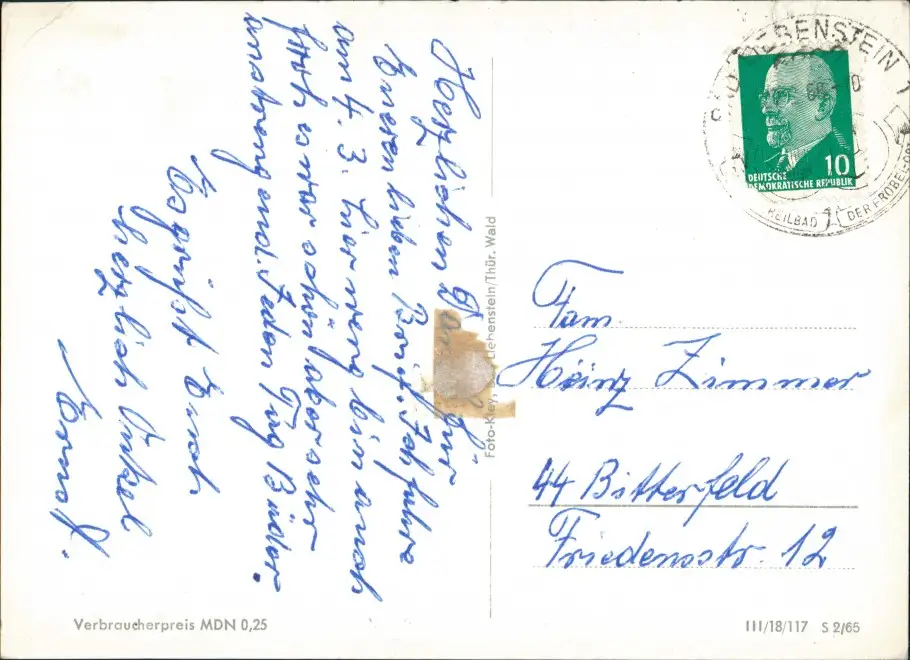 Herzlichen Dank für
Eueren lieben Brief. Ich fahre
am 4. 3. hier weg bin auch
froh war schön aber sehr
anstrengend. Jeden Tag Bäder.
Es grüßt Euch
herzlich Onkel
Ernst.
Foto-Kley, Liebenstein/Thür. Wald
BAD LIEBENSTEIN 1
HEILBAD
DER FRÖBELORT
10
DEUTSCHE
DEMOKRATISCHE REPUBLIK
Fam.
Heinz Zimmer
44 Bitterfeld
Friedensstr. 12
Verbraucherpreis MDN 0,25
III/18/117 S 2/65